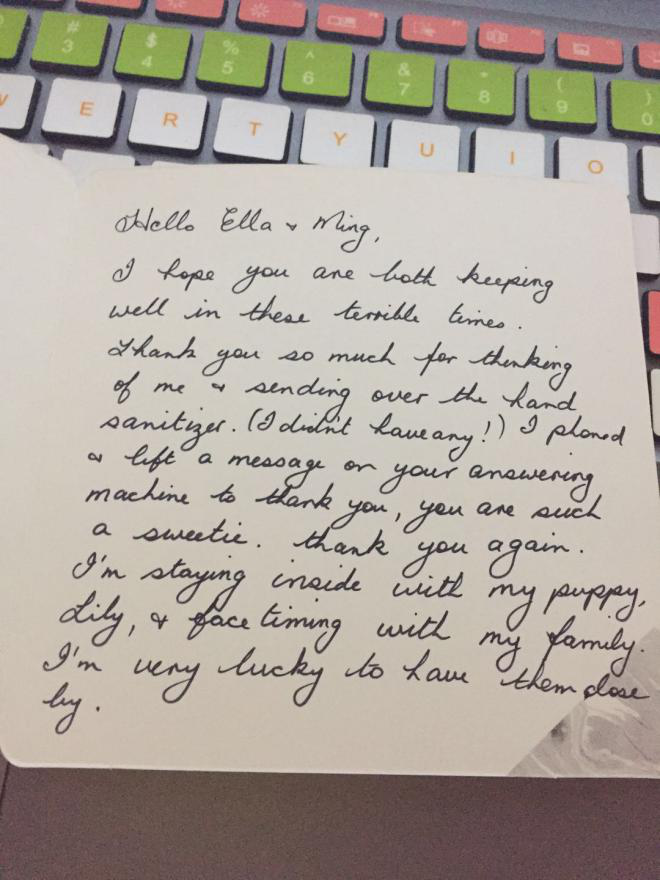 # $ % ^ & * ( )
3 4 5 6 7 8 9 0
W E R T Y U I O
Hello Ella & Ming,
I hope you are both keeping
well in these terrible times.
Thank you so much for thinking
of me & sending over the hand
sanitizer. (I didn't have any!) I phoned
& left a message on your answering
machine to thank you, you are such
a sweetie. thank you again.
I'm staying inside with my puppy,
Lily, & face timing with my family.
I'm very lucky to have them close
by.